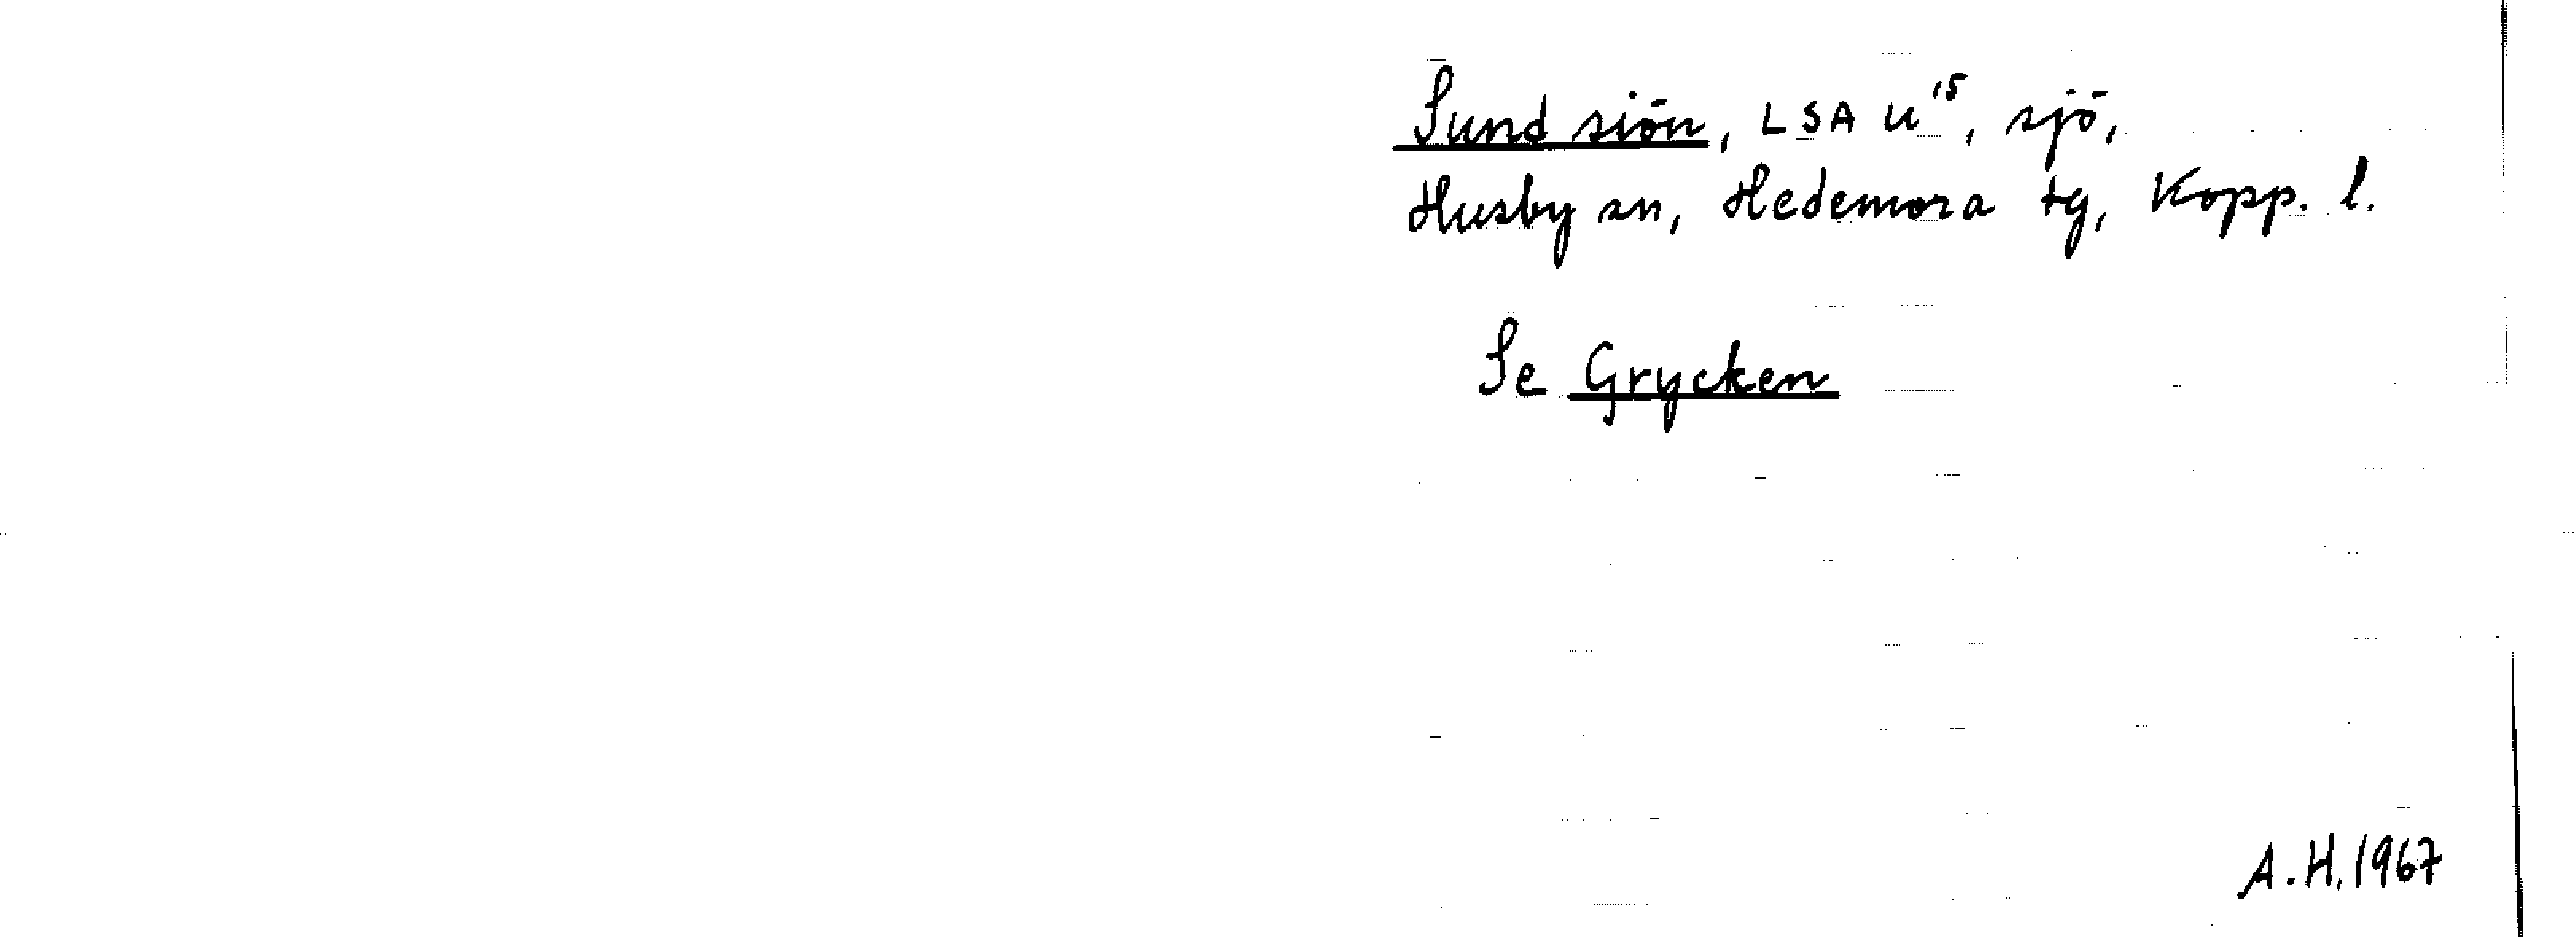 Sund siön, LSA U¹⁵, sjö,
Husby sn, Hedemora tg, Kopp. l.
Se Grycken
A.H. 1967